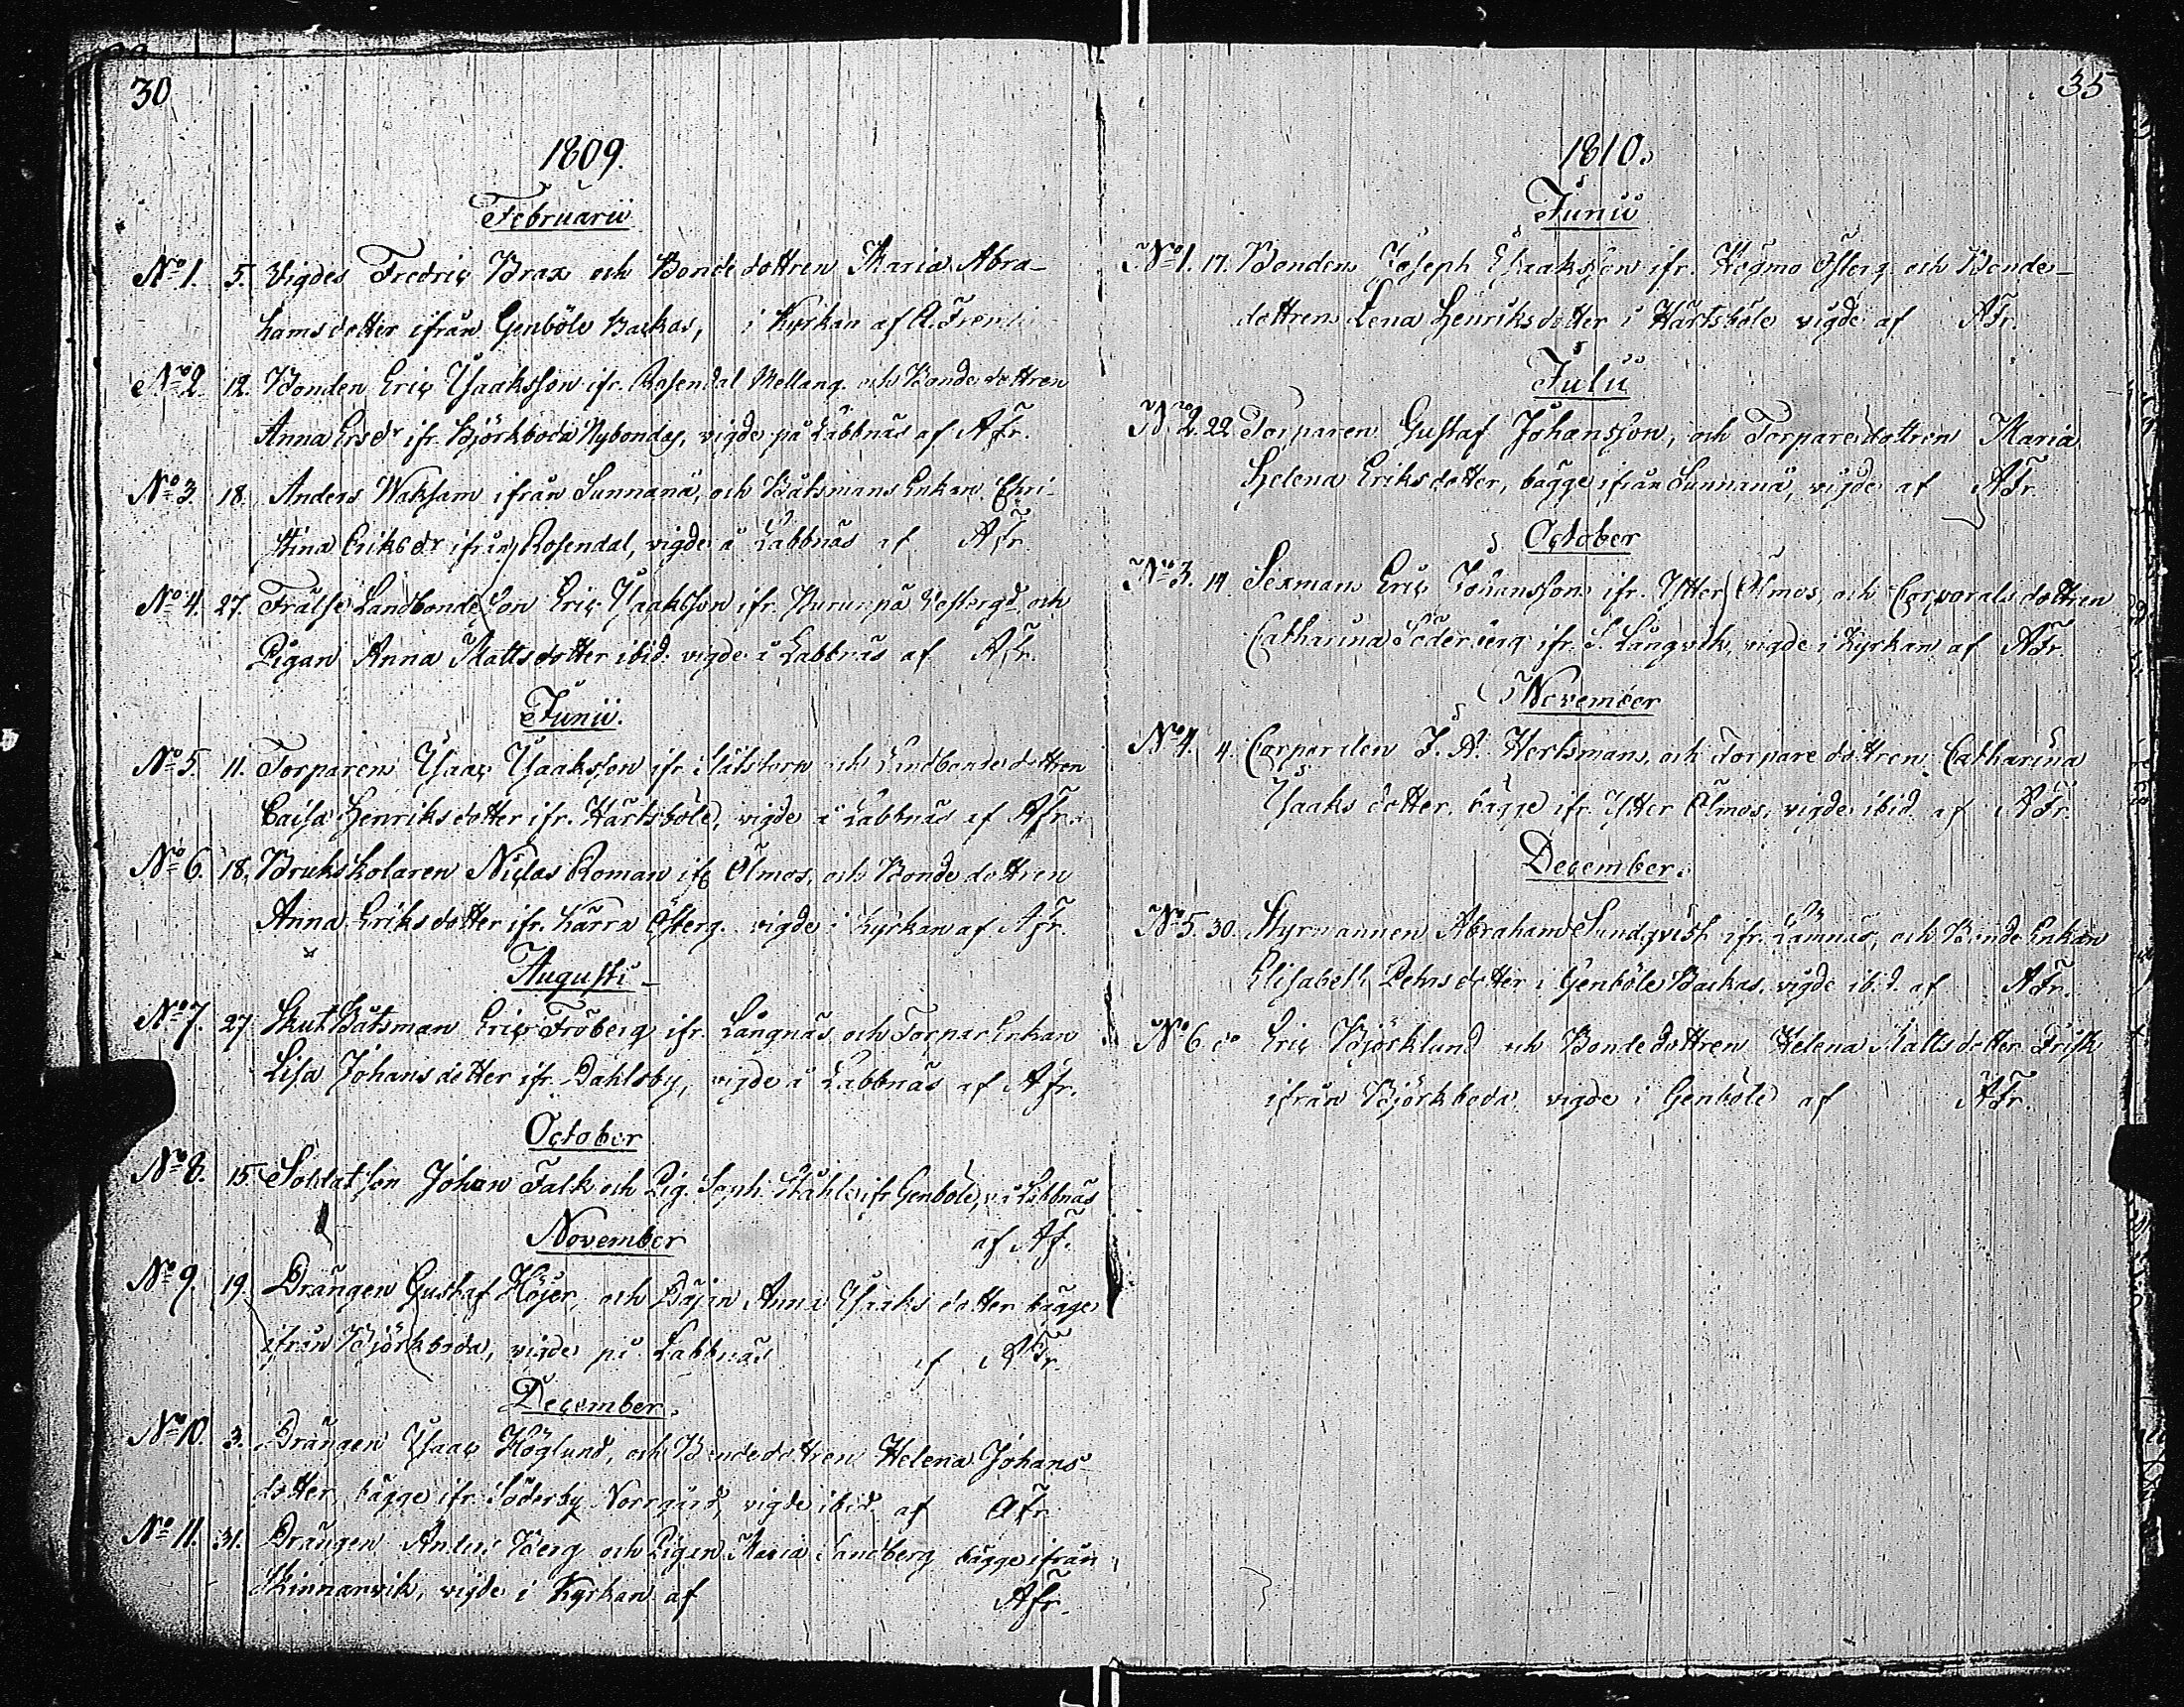 30
1809.
Februarii
No 1. 5. Vigdes Fredric Brax och Bonde dottren Maria Abra-
hams dotter ifrån Genböle Backas, i Kyrkan af A. Fren
No 2. 12. Bonden Eric Isaaksson ifr. Rosendal Mellang. och Bonde dottren
Anna Ersdr ifr. Björkboda Nybondas, vigde på Labbnäs af A Fr.
No 3. 18. Anders Waksam ifrån Sunnanå, och Båtsmans Enkan Chri-
stina Eriksdr ifrån Rosendal, vigde å Labbnäs af A Fr.
No 4. 27. Frälse Landbonde Son Eric Isaaksson ifr. Vestergd och
Pigan Anna Mattsdotter ibid. vigde å Labbnäs af A Fr.
Junii.
No 5. 11. Torparen Isaac Isaaksson ifr. och Landbonde dottren
Caisa Henriksdotter ifr. Härtsböle, vigde å Labbnäs af A Fr.
No 6. 18. Brukskolaren Niclas Roman ifr Ölmos, och Bonde dottren
Anna Eriksdotter ifr. Kärra Österg. vigde i Kyrkan af A Fr.
Augusti
No 7. 27. Skut Båtsman Eric Fröberg ifr. Långnäs och Torpar Enkan
Lisa Johans dotter ifr. Dahlsby, vigde å Labbnäs af A Fr.
October
No 8. 15. Soldat son Johan Falk och Pig. Soph. Ståhl ifr. Genböle, v. å Labbnäs
af A F.
November
No 9. 19. Drängen Gustaf Höjer, och Pigan Anna Isaaks dotter bägge
ifrån Björkboda, vigde på Labbnäs af A Fr.
December.
No 10. 3. Drängen Isaac Höglund, och Bondedottren Helena Johans-
dotter, bägge ifr. Söderby Norrgård, vigde ibid. af A Fr.
No 11. 31. Drängen Berg och Pigan Maria Sandberg bägge ifrån
Skinnarvik, vigde i Kyrkan af A Fr.
35
1810.
Junii
No 1. 17. Bonden Joseph Isaaksson ifr. Högmo Österg. och Bonde-
dottren Lena Henriksdotter i Härtsböle vigde af A Fr.
Julii
No 2. 22. Torparen Gustaf Johansson, och Torparedottren Maria
Helena Eriksdotter, bägge ifrån Sunnanå, vigde af A Fr.
October
No 3. 14. Sexman Eric Johansson ifr. Ytter Ölmos, och Corporals dottren
Catharina Söderberg ifr. S. Långvik, vigde i Kyrkan af A Fr.
November
No 4. 4. Corporalen J. A. Hertsman, och Torpare dottren Catharina
Isaaks dotter. bägge ifr. Ytter Ölmos, vigde ibid. af A Fr.
December.
No 5. 30. Styrmannen Abraham Sundqvist ifr. Lamnäs, och Bonde Enkan
Elisabeth Pehrsdotter i Genböle Backas, vigde ibid. af A Fr.
No 6 do Eric Björklund och Bondedottren Helena Matts dotter Frisk
ifrån Björkboda vigde i Genböle af A Fr.